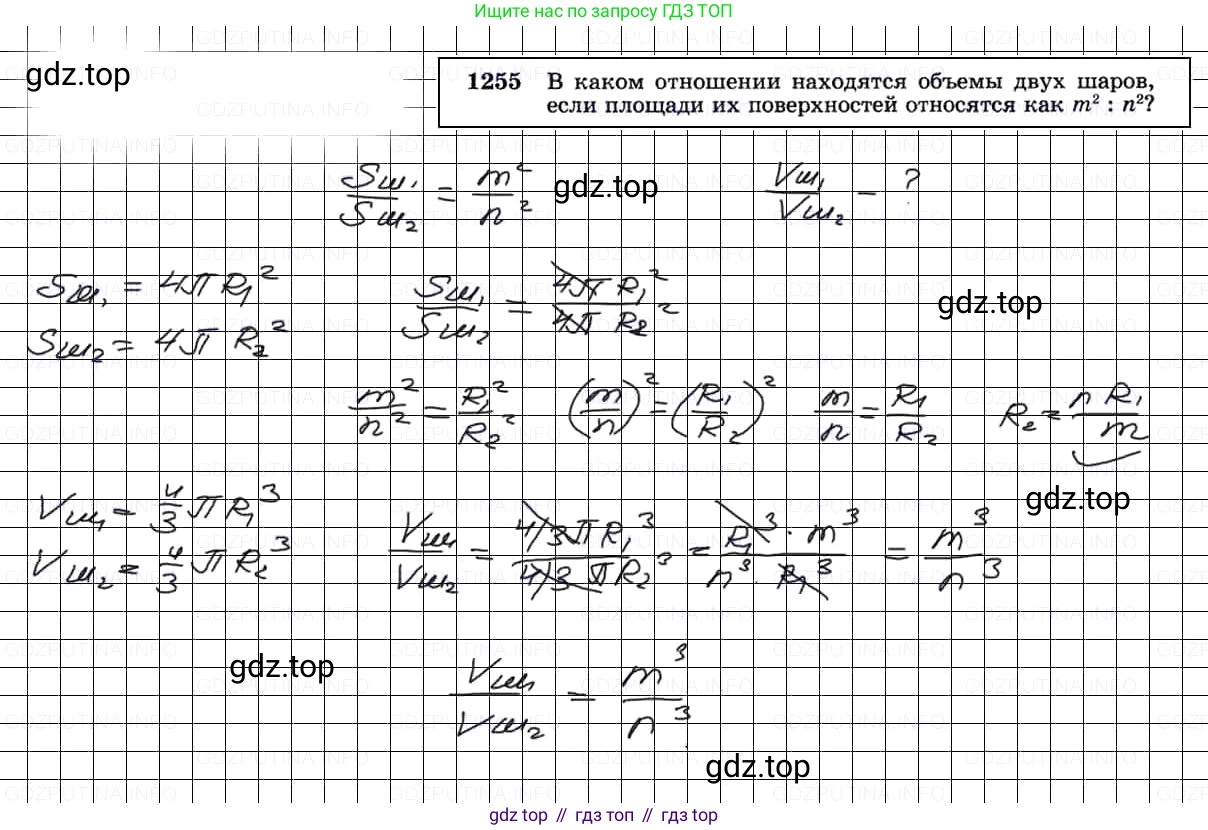 Ищите нас по запросу ГДЗ ТОП
gdz.top
1255 В каком отношении находятся объемы двух шаров,
если площади их поверхностей относятся как m² : n²?
Sш₁/Sш₂ = m²/n² gdz.top Vш₁/Vш₂ = ?
Sш₁ = 4π R₁² Sш₁/Sш₂ = 4π R₁²/4π R₂² gdz.top
Sш₂ = 4π R₂²
m²/n² = R₁²/R₂² (m/n)² = (R₁/R₂)² m/n = R₁/R₂ R₂ = n R₁/m
gdz.top
Vш₁ = 4/3 π R₁³ Vш₁/Vш₂ = 4/3 π R₁³/4/3 π R₂³ = R₁³ · m³/n³ · R₁³ = m³/n³
Vш₂ = 4/3 π R₂³
gdz.top
Vш₁/Vш₂ = m³/n³
gdz.top
gdz top // гдз топ // gdz top